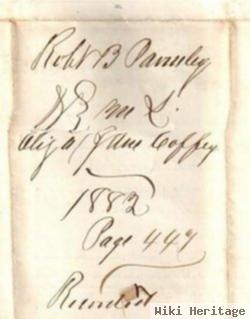 Robt B Parmley
& M L.
Eliza Jane Coffey
1882
Page 447
Recorded
Wiki Heritage